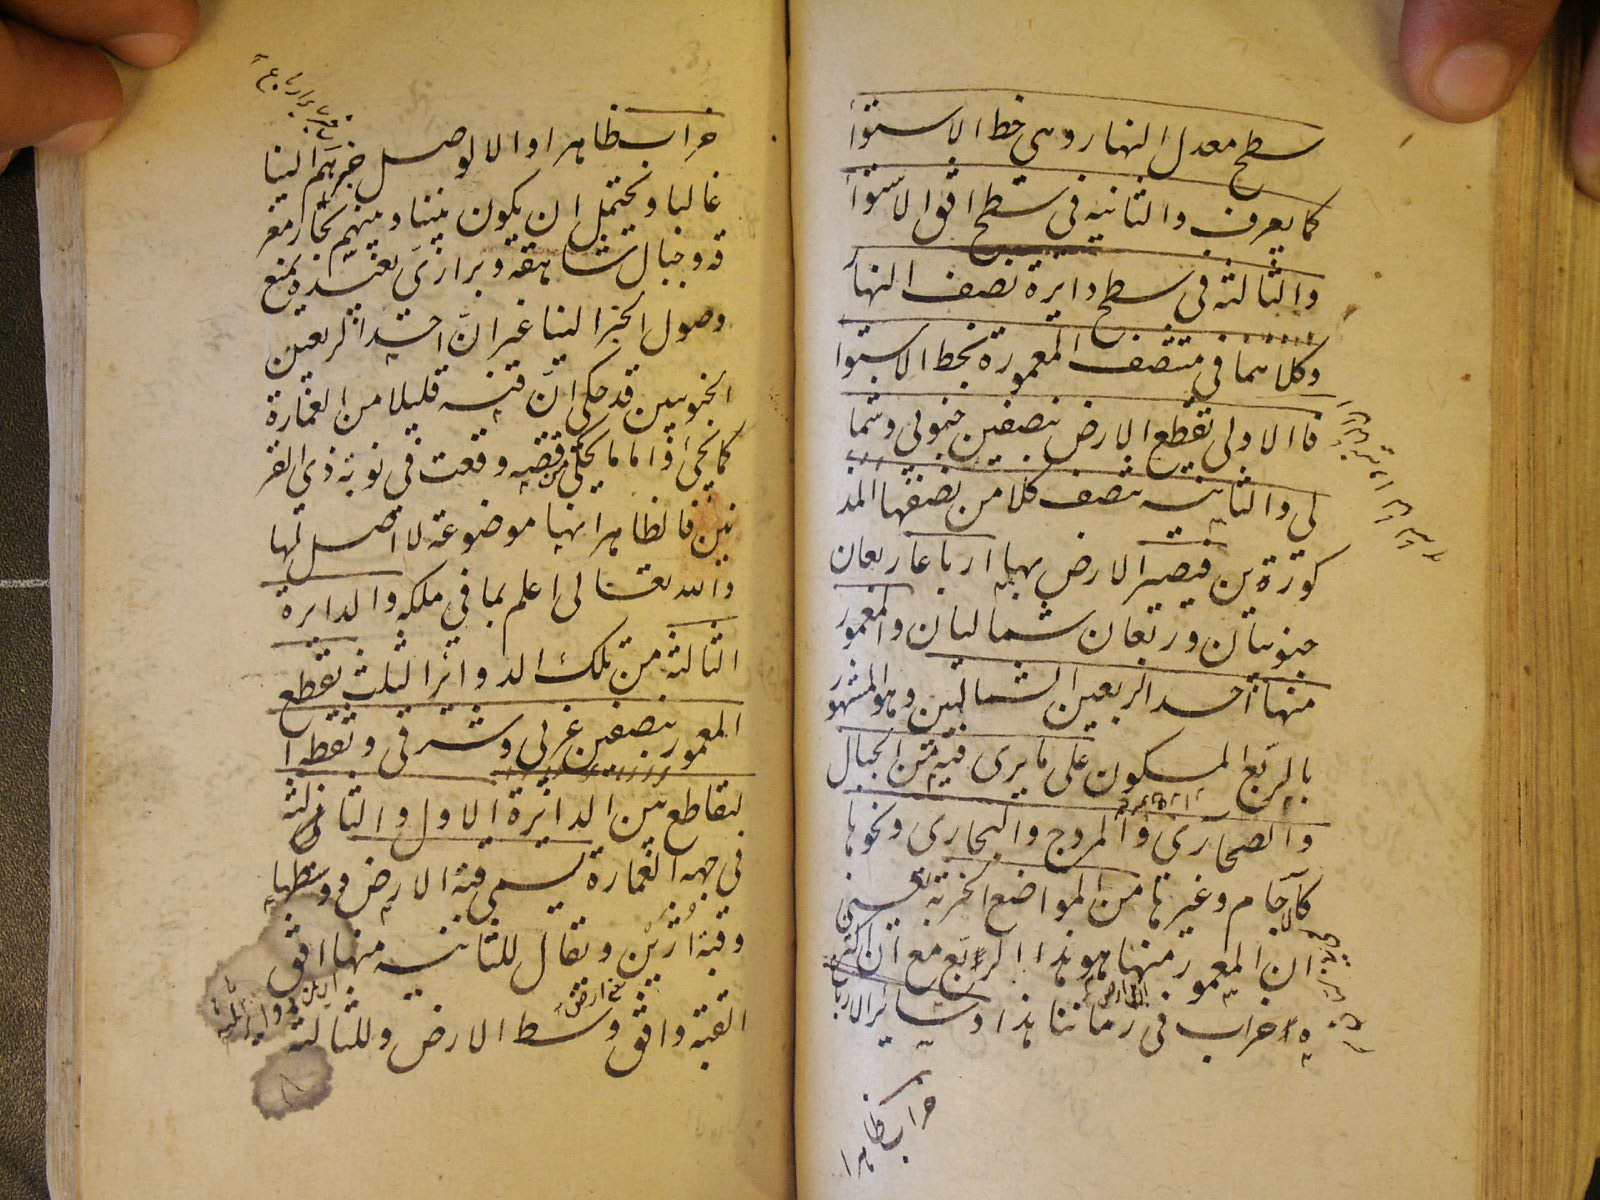 سطح معدل النهار وهى خط الاستواء
كما يعرف والثانيه فى سطح افق الاستواء
والثالثه فى سطح دايرة نصف النهار
وكلاهما فى منتصف المعمورة بخط الاستوا
فا الاولى تقطع الارض بنصفين جنوبى وشما
لى والثانيه تنصف كلا من نصفها المذ
كورين فيصير الارض بها ارباعا ربعان
جنوبيان وربعان شماليان والمعمور
منها احد الربعين الشماليين وهو المشهور
بالربع المسكون على ما يرى فيه من الجبال
والصحارى والمروج والبحارى ونحوها
كالآجام وغيرها من المواضع الخربة يعنى
ان المعمور منها هو هذا الربع مع ان اكثر
ه خراب فى زماننا هذا وسائر الاربا
خراب ظاهرا
خراب ظاهرا والا لوصل خبرهم الينا
غالبا ويحتمل ان يكون بيننا وبينهم بحار مغر
قه وجبال شاهقة وبرارى بعيده يمنع
وصول الخبر الينا غير ان احد الربعين
الجنوبيين قد حكى ان فيه قليلا من العمارة
كما يجئ واما ما يحكى من قصه وقعت فى نوبة ذى القر
نين فالظاهر انها موضوعة لا اصل لها
والله تعالى اعلم بما فى ملكه والدايرة
الثالثة من تلك الدوائر الثلث يقطع
المعمور بنصفين غربى وشرقى ونقطه ا
لتقاطع بين الدائرة الاول والثالثة
فى جهه العمارة يسمى قبة الارض ووسطها
وقبة ازين ويقال للثانيه منها افق
القبة وافق وسط الارض وللثالثه